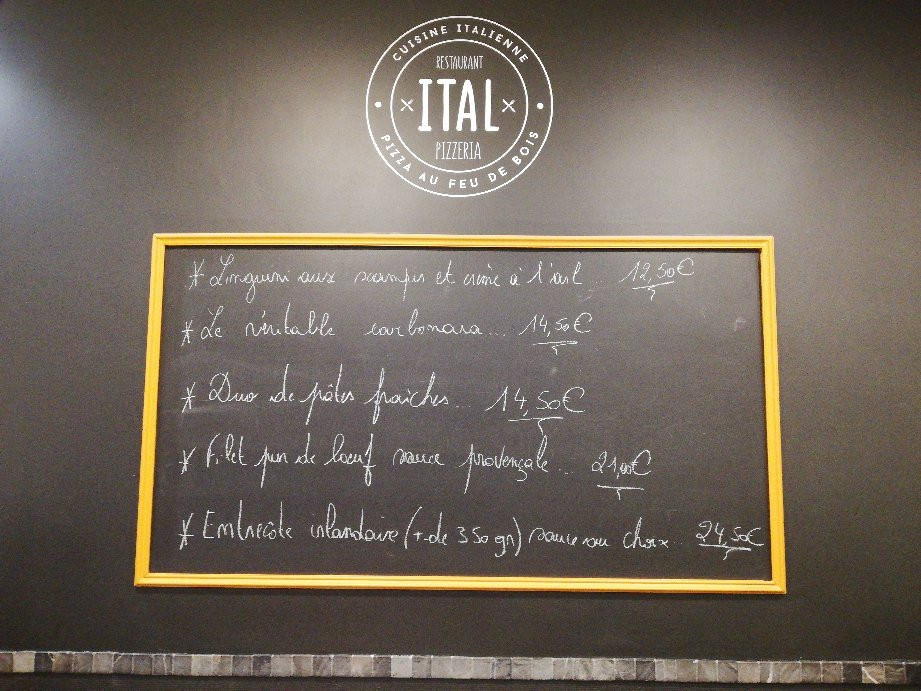 CUISINE ITALIENNE
RESTAURANT
ITAL
PIZZERIA
PIZZA AU FEU DE BOIS
* Linguini aux scampis et crème à l'ail ... 12,50€
* Le véritable carbonara ... 14,50€
* Duo de pâtes fraîches ... 14,50€
* Filet pur de boeuf sauce provençale ... 21,00€
* Entrecôte irlandaise (+-de 350 gr) sauce au choix ... 24,50€